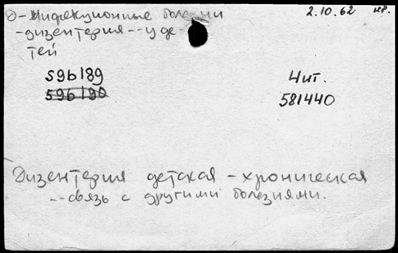 Д-Инфекционные болезни 2.10.62 нр.
-дизентерия--у де-
тей
596/89 Чит.
596/90 581440
Дизентерия детская-хроническая
--связь с другими болезнями.